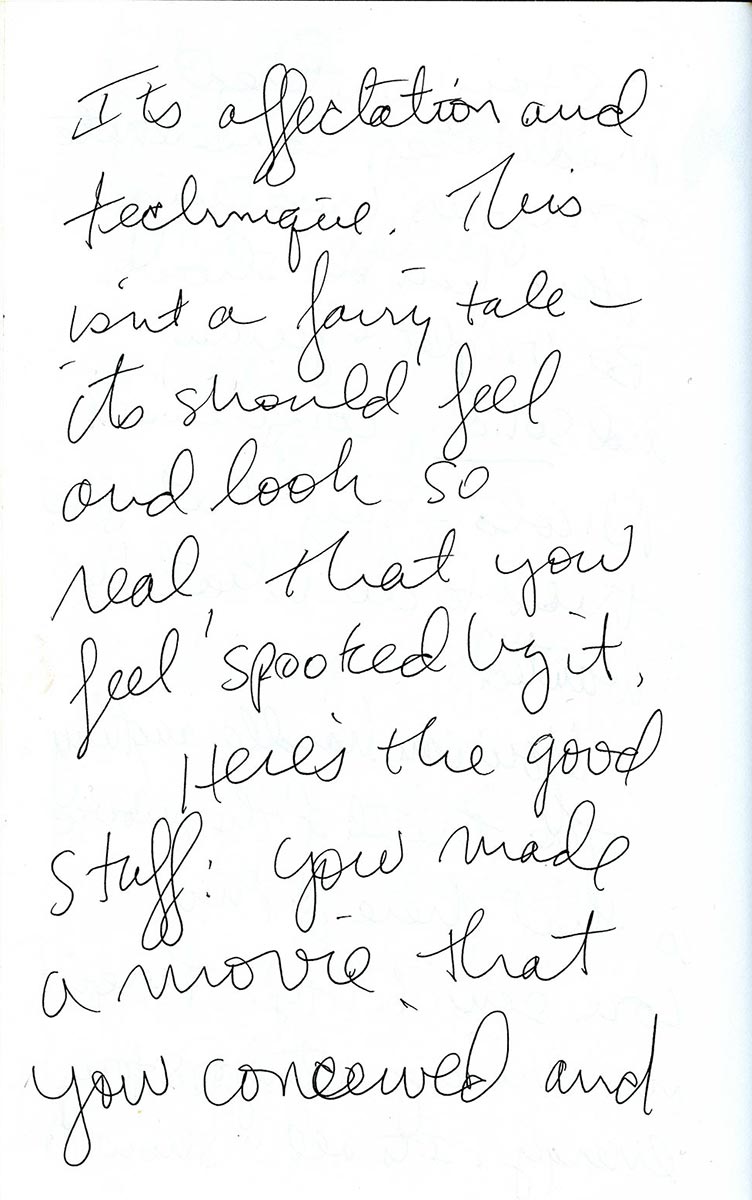 Its affectation and
technique. This
isnt a fairy tale –
its should feel
and look so
real, that you
feel spooked by it.
Here's the good
stuff: you made
a movie, that
you conceived and